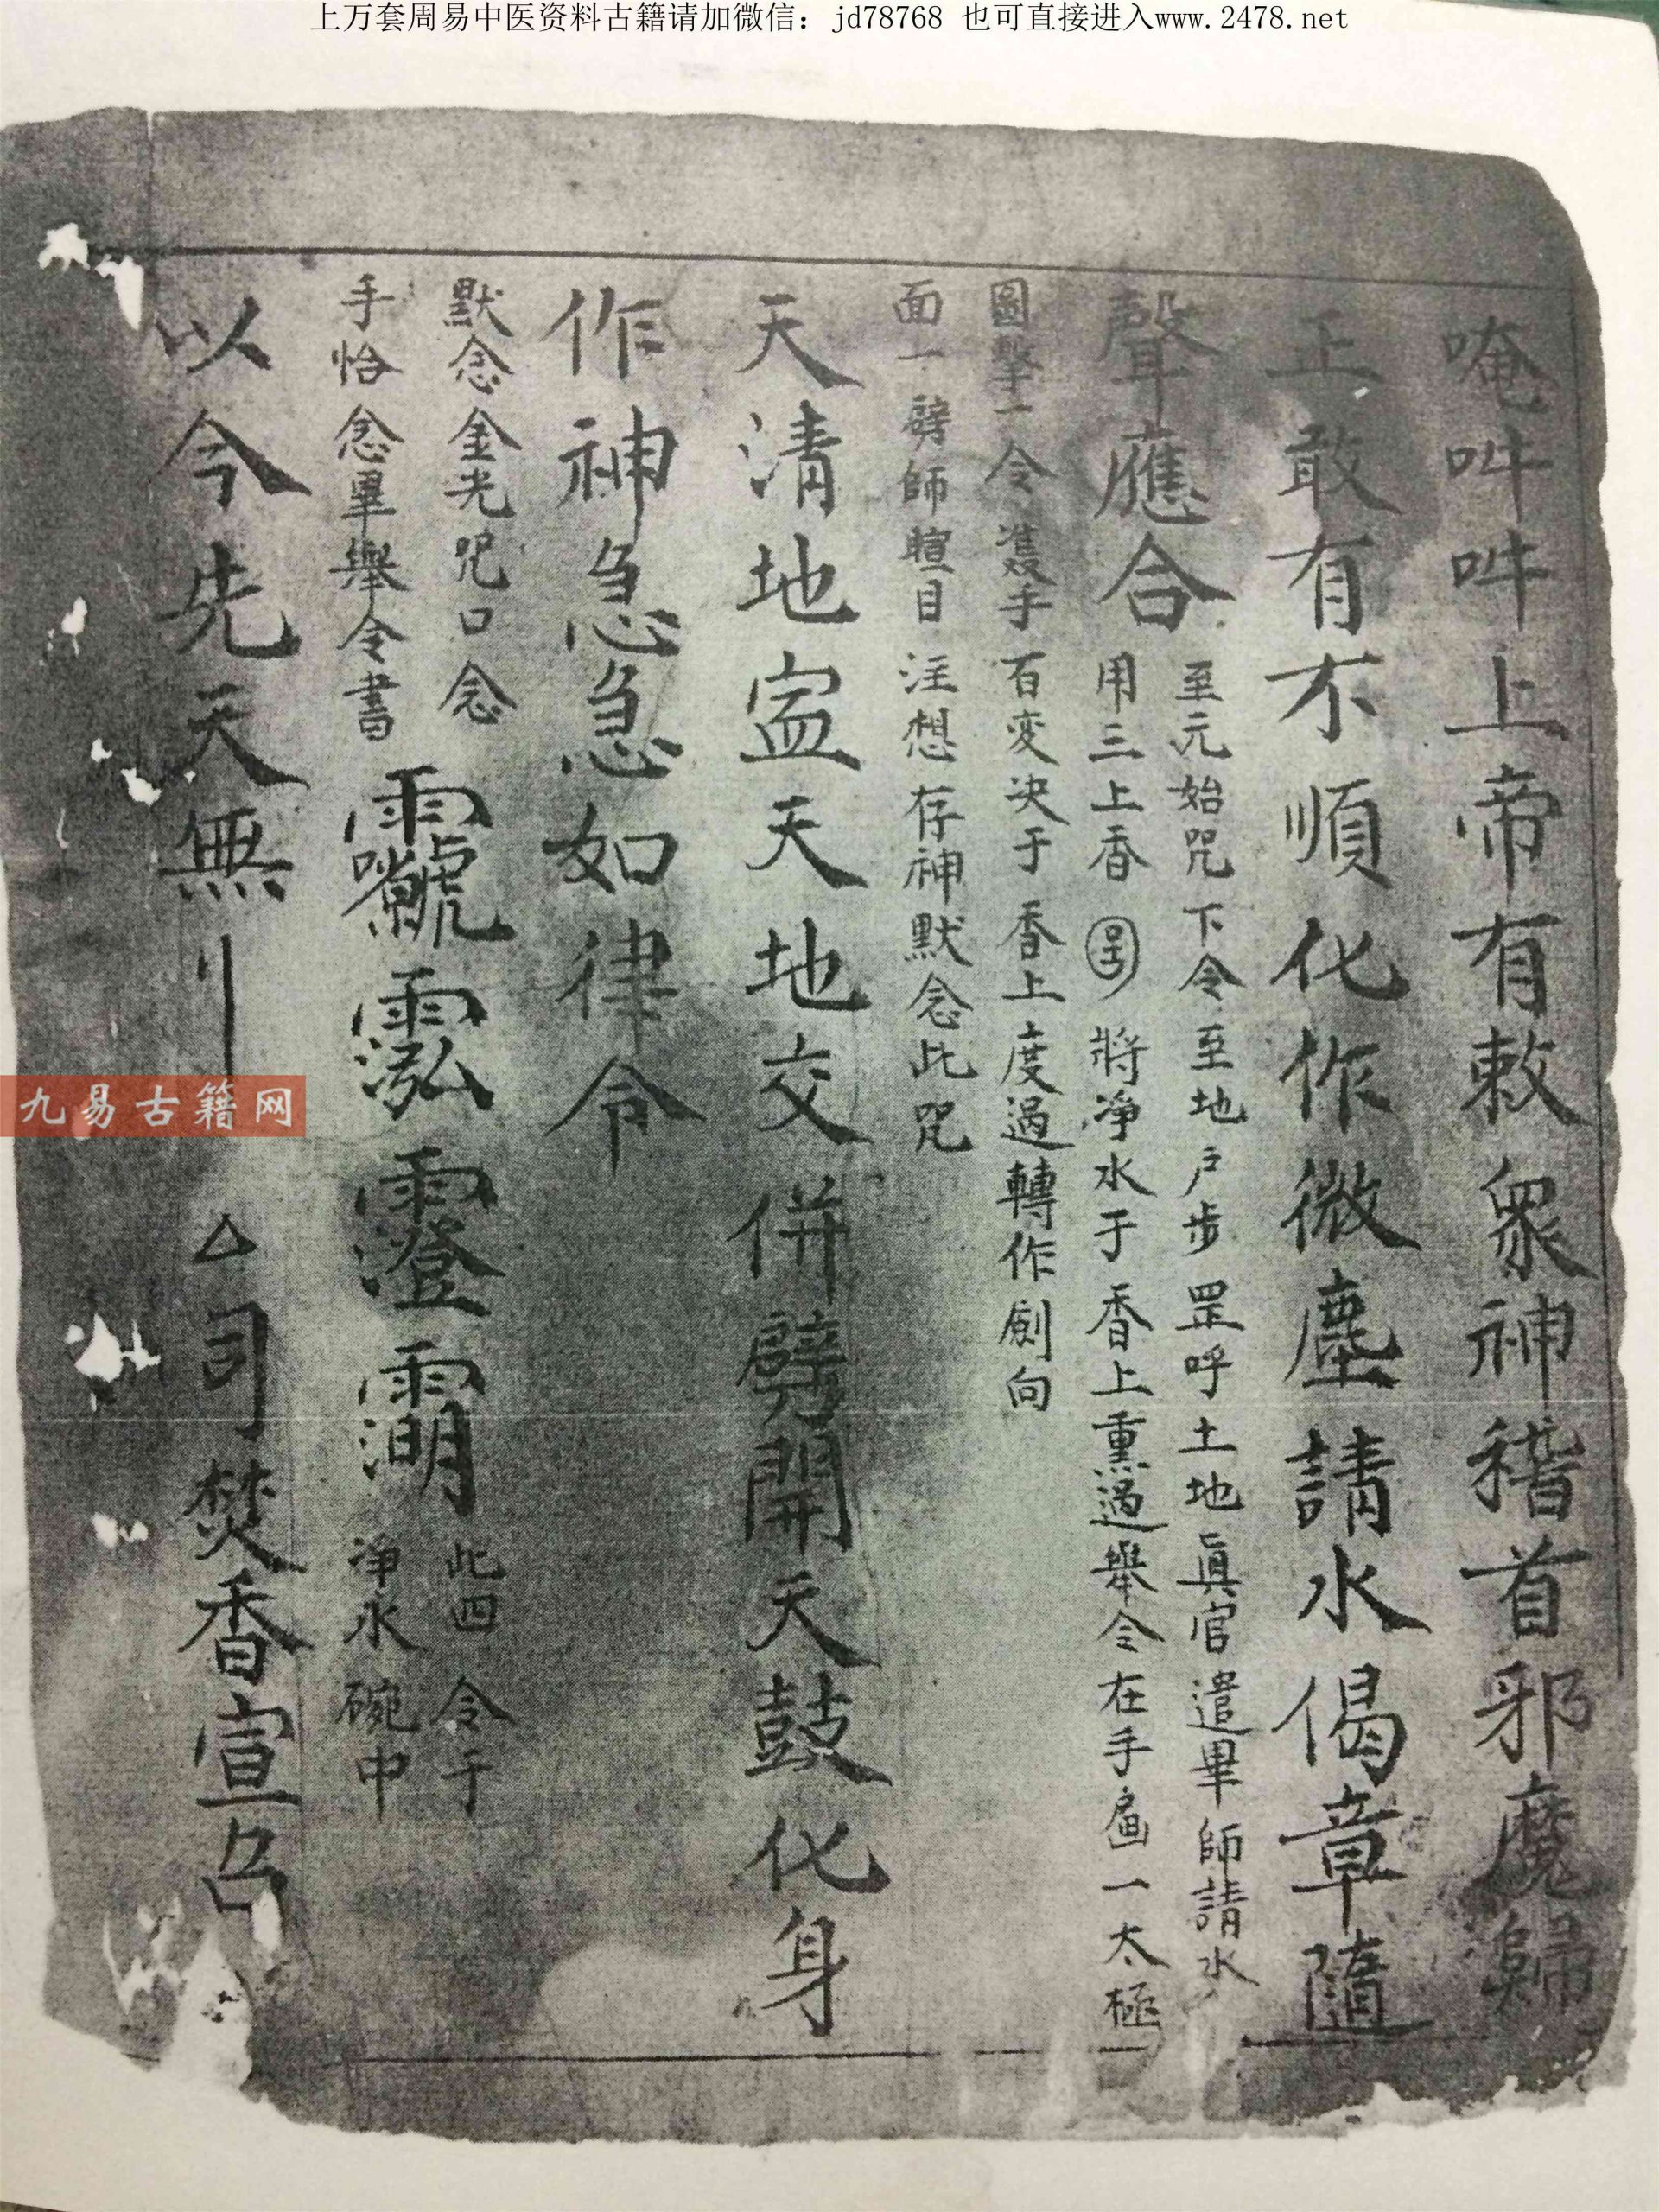 上万套周易中医资料古籍请加微信：jd78768 也可直接进入www.2478.net
唵吽吽上帝有敕衆神稽首邪魔歸
正敢有不順化作微塵請水偈章隨
聲應合
至元始咒下令至地户步罡呼土地眞官遣畢師請水
用三上香 將净水于香上熏過舉令在手畐一太極
圖擊一令 手百变决于香上度過轉作劍向
面一劈師暄目注想存神默念此咒
天清地寍天地交併劈開天鼓化身
作神急急如律令
默念金光咒口念
手恰念畢舉令書
此四令于
净水碗中
以今先天無
厶司焚香宣召
九易古籍网